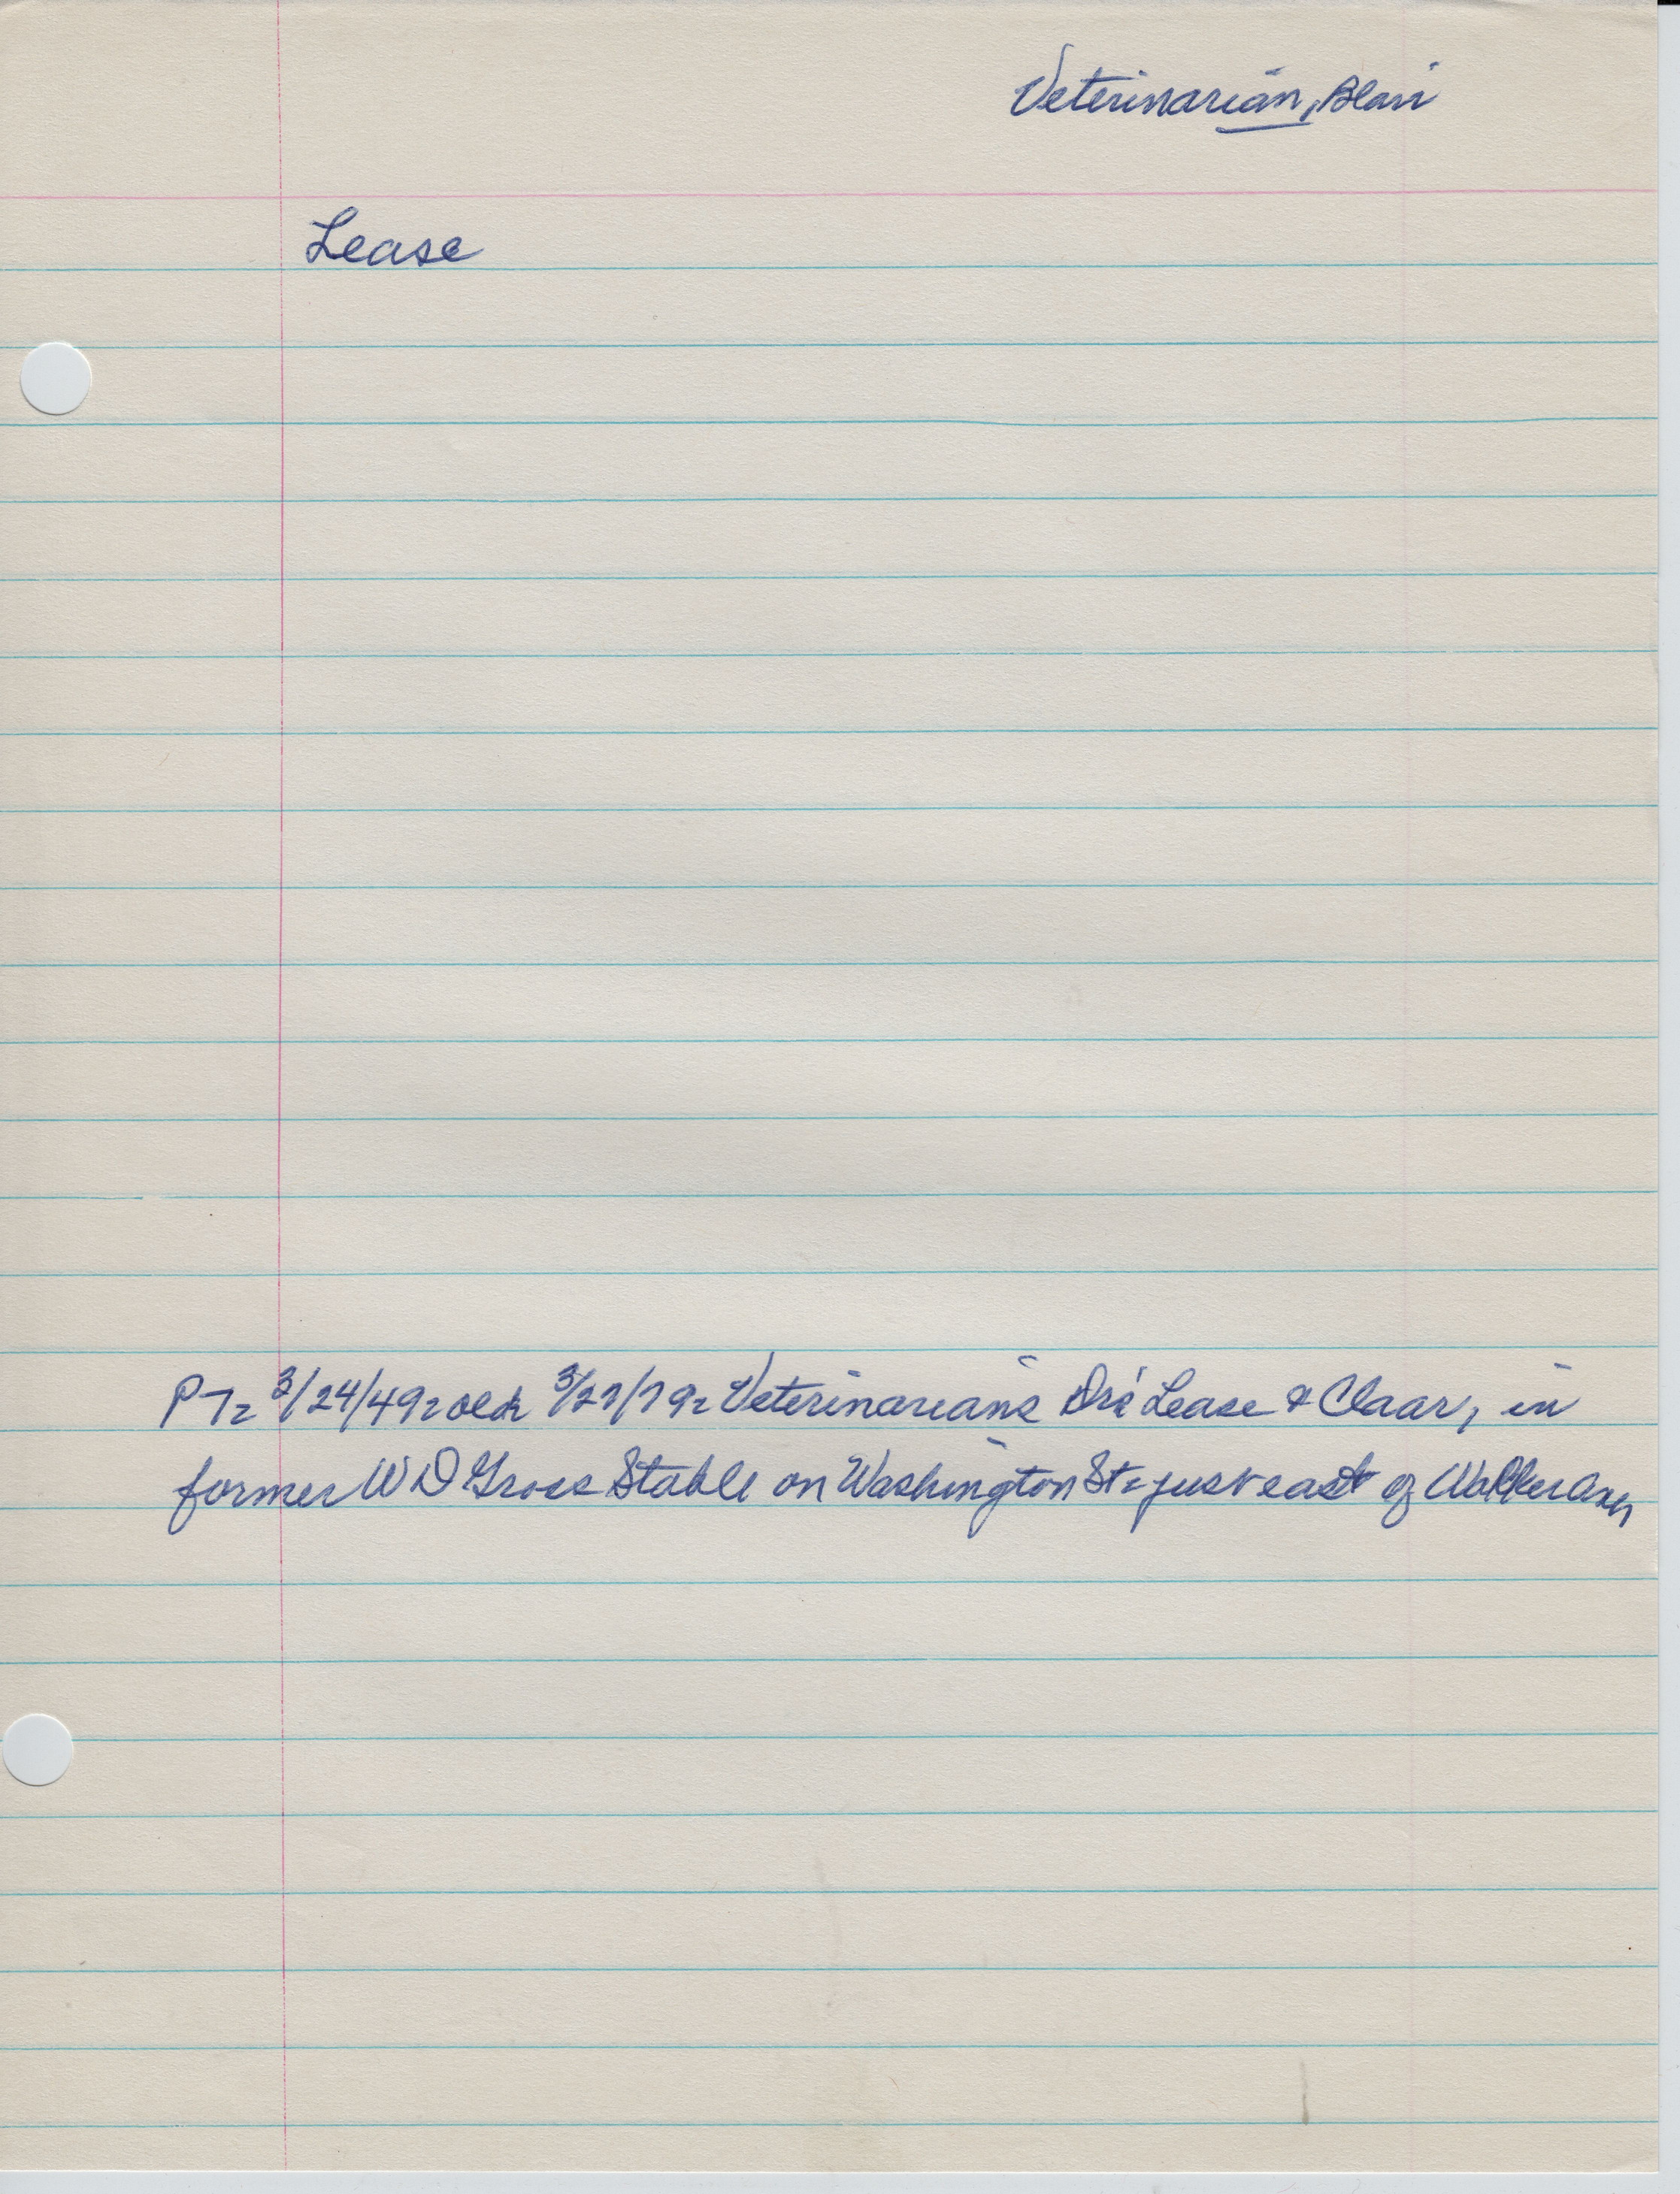 Veterinarian, Blair
Lease
P7= 3/24/49= 3/27/79= Veterinarians Drs Lease & Claar, in
former W D Gross Stable on Washington St= just east of Walker Ave,